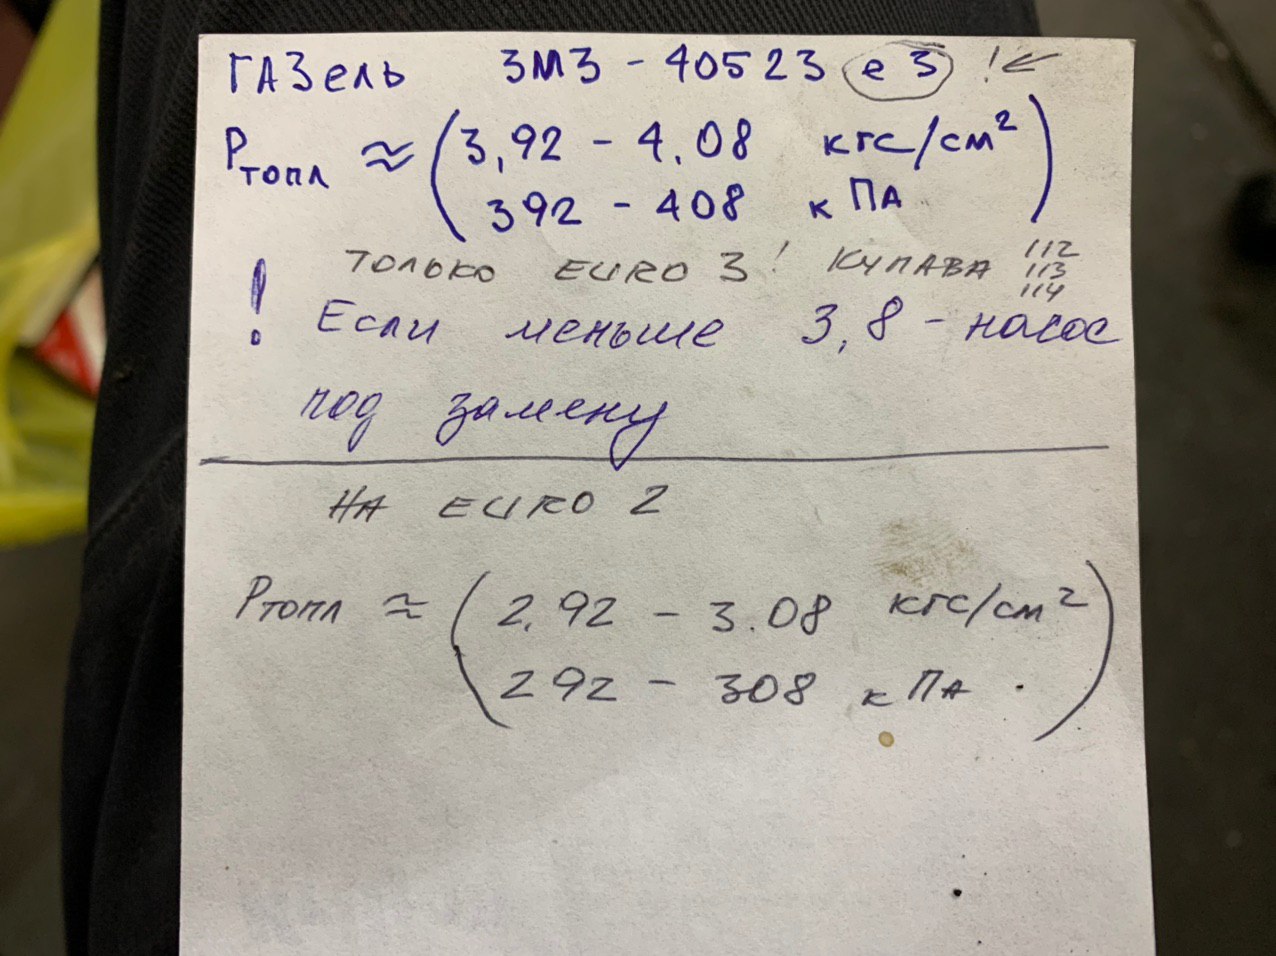 ГАЗель ЗМЗ - 40523 е 3 ! ←
Pтопл ≈ (3,92 - 4.08 кгс/см²
392 - 408 кПА)
только EURO 3 ! КУПАВА 112
113
114
! Если меньше 3,8 - насос
под замену
НА EURO 2
Pтопл ≈ (2.92 - 3.08 кгс/см²
292 - 308 кПА)